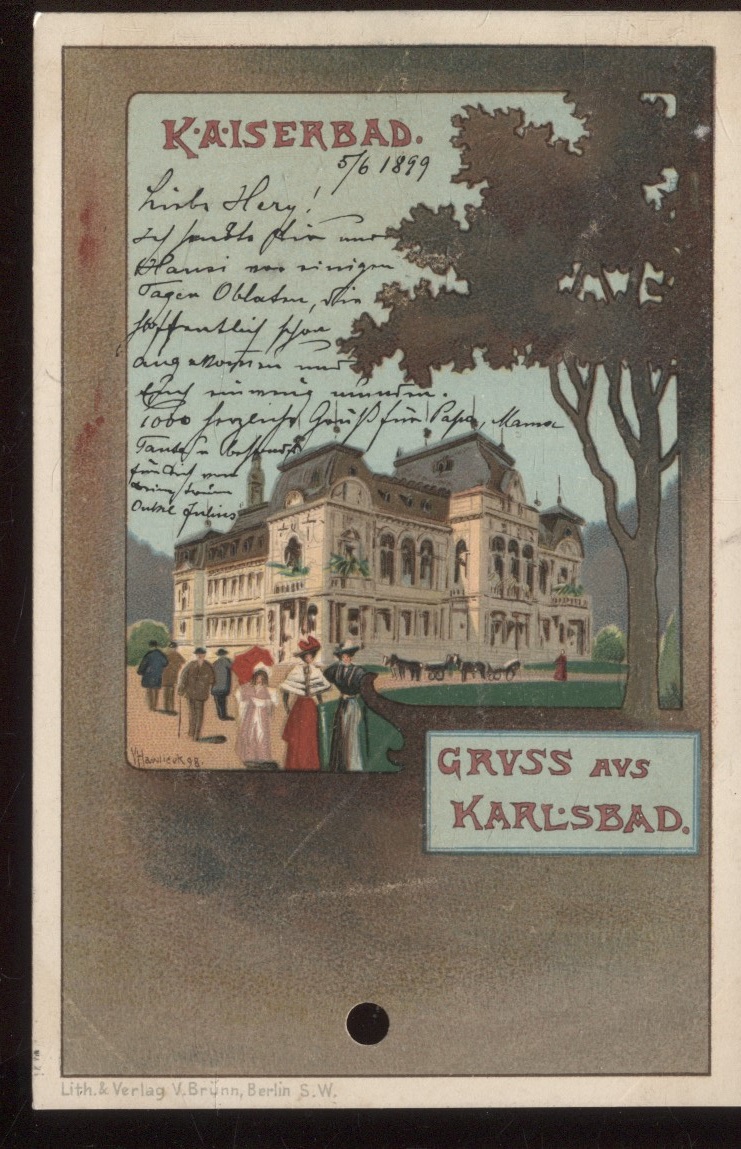 KAISERBAD.
5/6 1899
Liebe Hery!
Ich sandte Dir und
Hansi vor einigen
Tagen Oblaten, die
hoffentlich schon
angekommen und
Euch einwenig munden.
1000 herzliche Grüße für Papa, Mama
Tante u besonders
für Dich von
Onkel Julius
VHawlicek 98.
GRVSS AVS
KARLSBAD.
Lith. & Verlag V. Brünn, Berlin S. W.